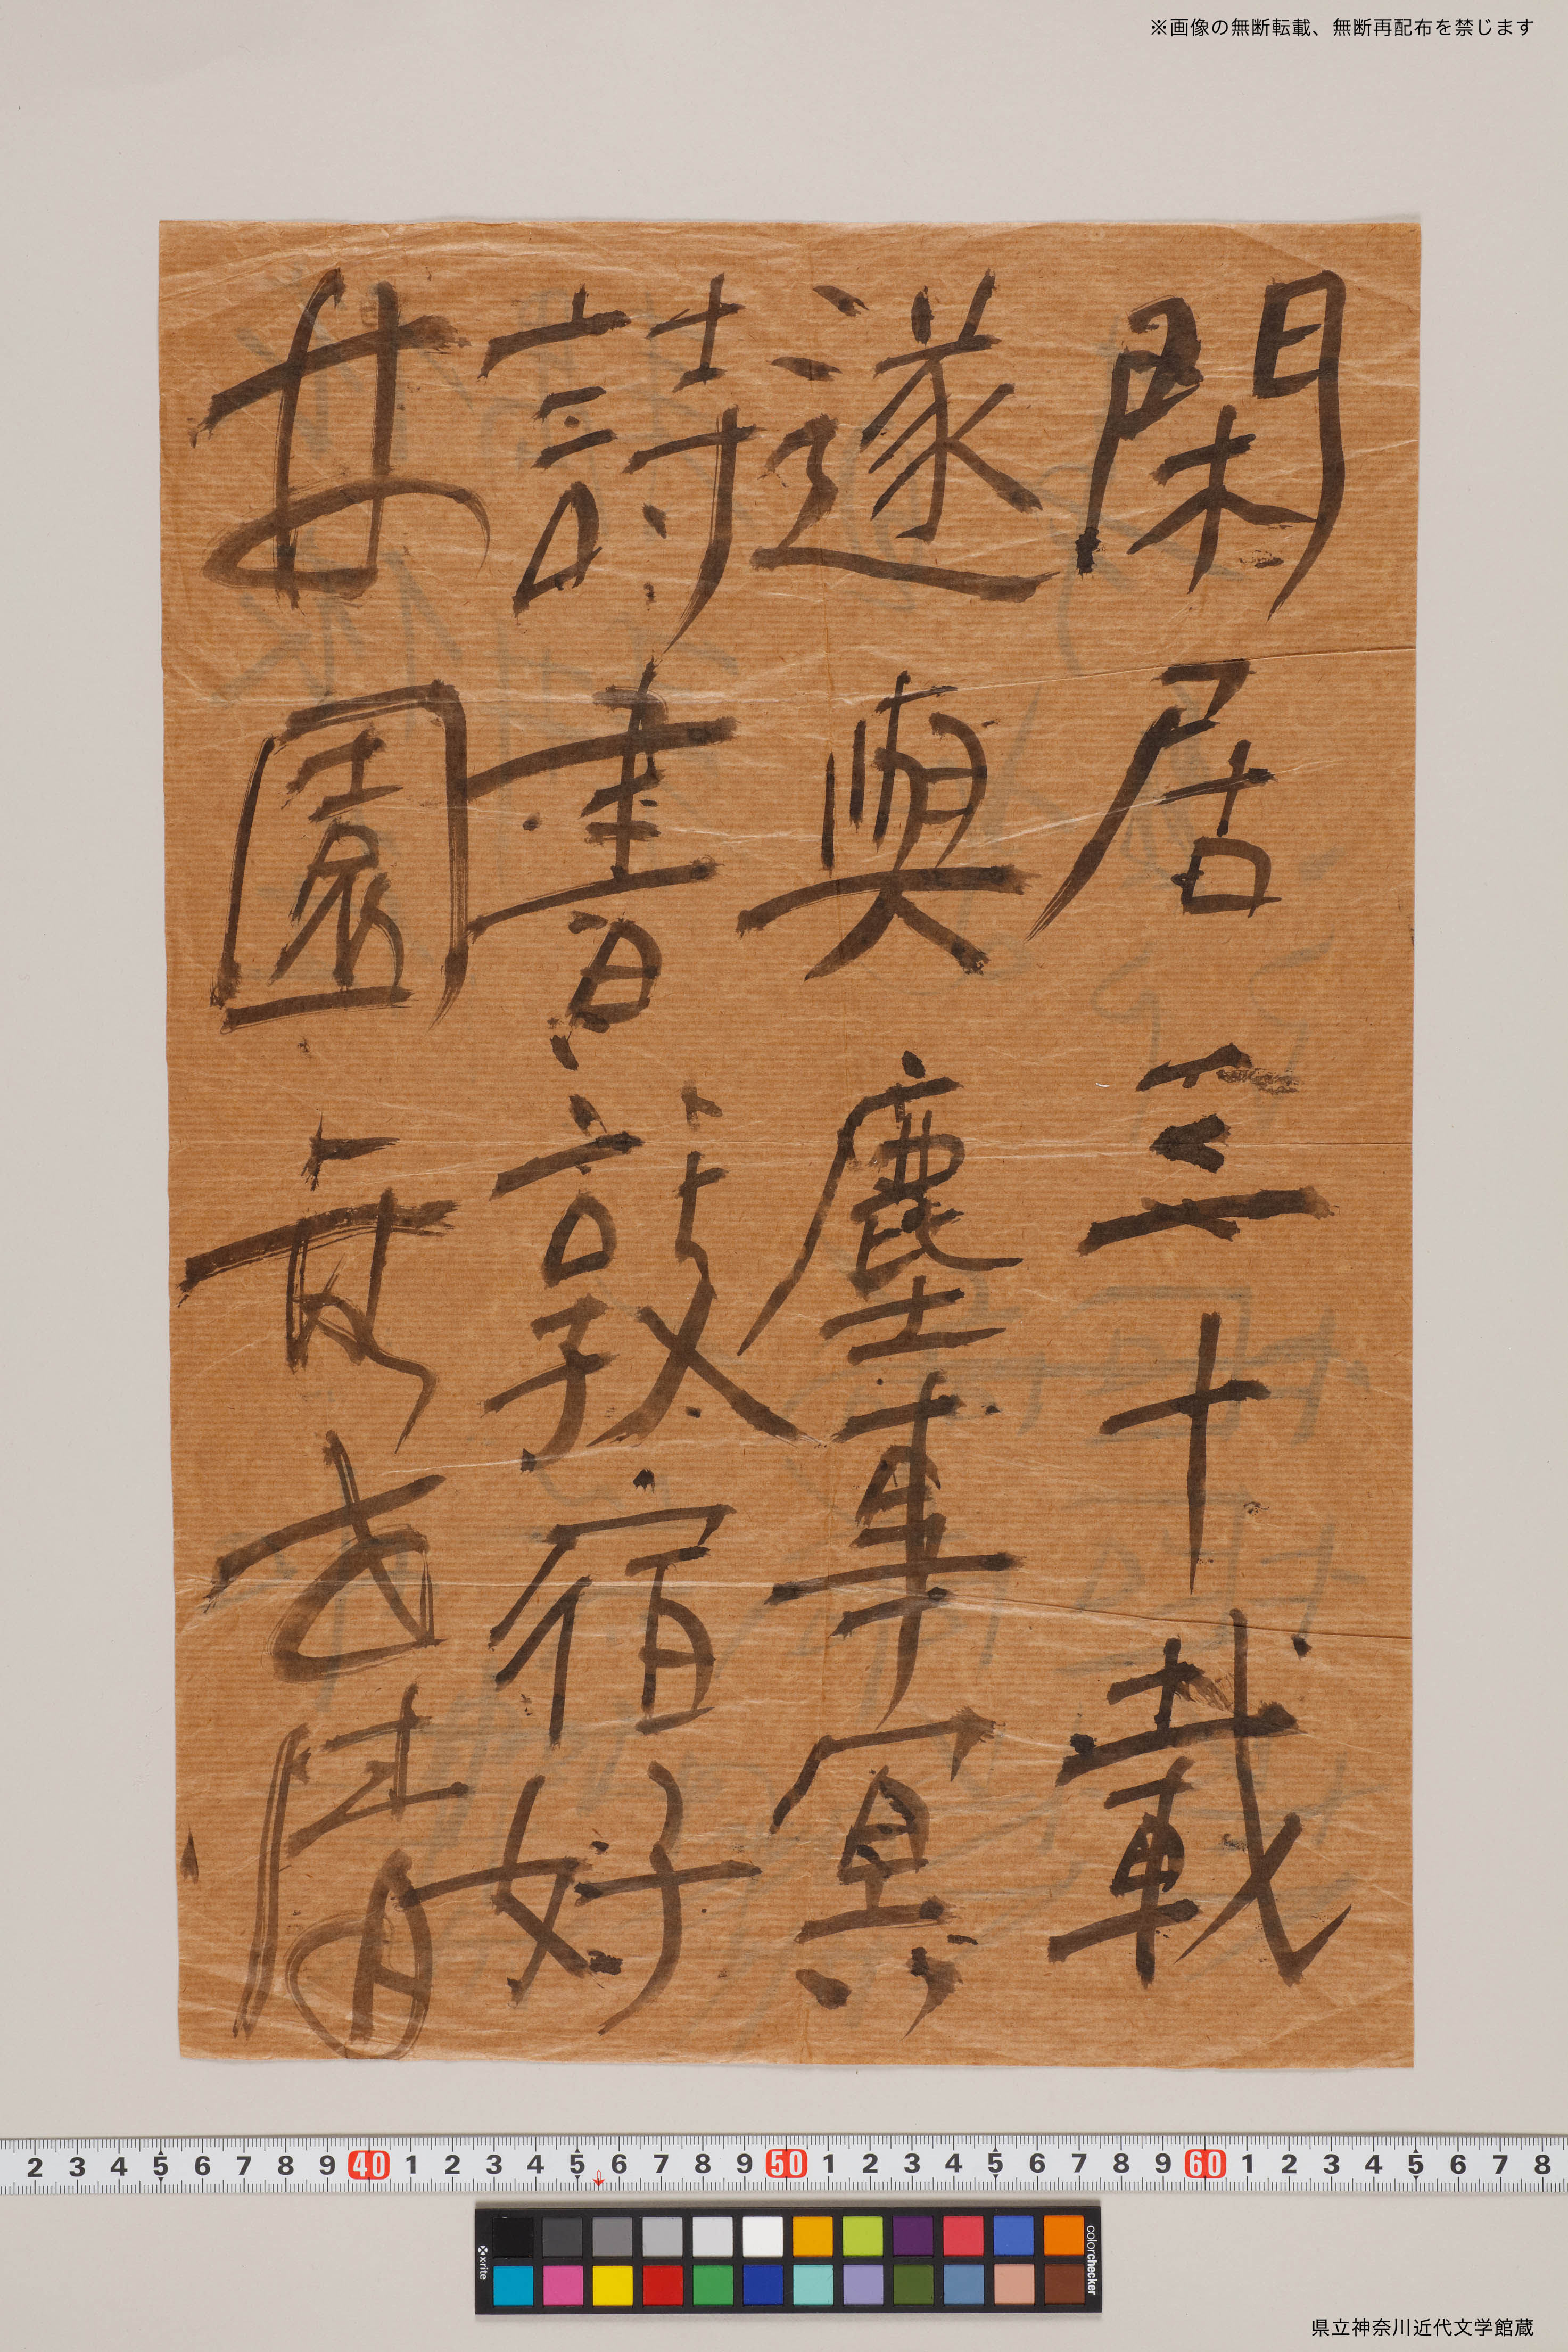 ※画像の無断転載、無断再配布を禁じます
閑居三十載
遂與塵事冥
詩書敦宿好
林園無世情
2 3 4 5 6 7 8 9 40 1 2 3 4 5 6 7 8 9 50 1 2 3 4 5 6 7 8 9 60 1 2 3 4 5 6 7 8
x-rite
colorchecker
県立神奈川近代文学館蔵